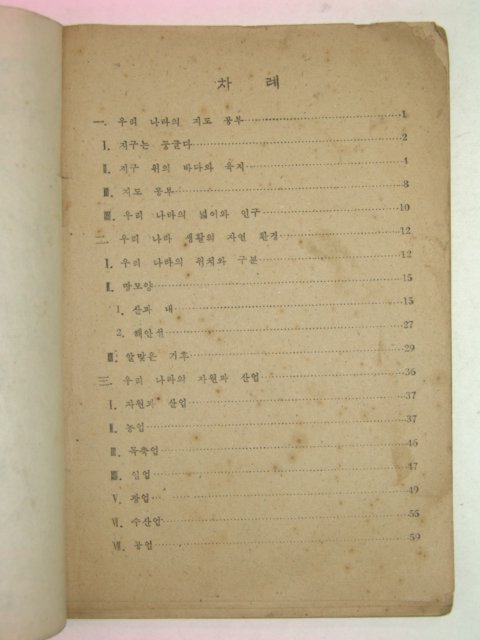 차 례
一. 우리 나라의 지도 공부 1
Ⅰ. 지구는 둥글다 2
Ⅱ. 지구 위의 바다와 육지 4
Ⅲ. 지도 공부 8
Ⅳ. 우리 나라의 넓이와 인구 10
二. 우리 나라 생활의 자연 환경 12
Ⅰ. 우리 나라의 위치와 구분 12
Ⅱ. 땅모양 15
1. 산과 내 15
2. 해안선 27
Ⅲ. 알맞은 기후 29
三. 우리 나라의 자원과 산업 36
Ⅰ. 자원과 산업 37
Ⅱ. 농업 37
Ⅲ. 목축업 46
Ⅳ. 임업 47
Ⅴ. 광업 49
Ⅵ. 수산업 55
Ⅶ. 공업 59